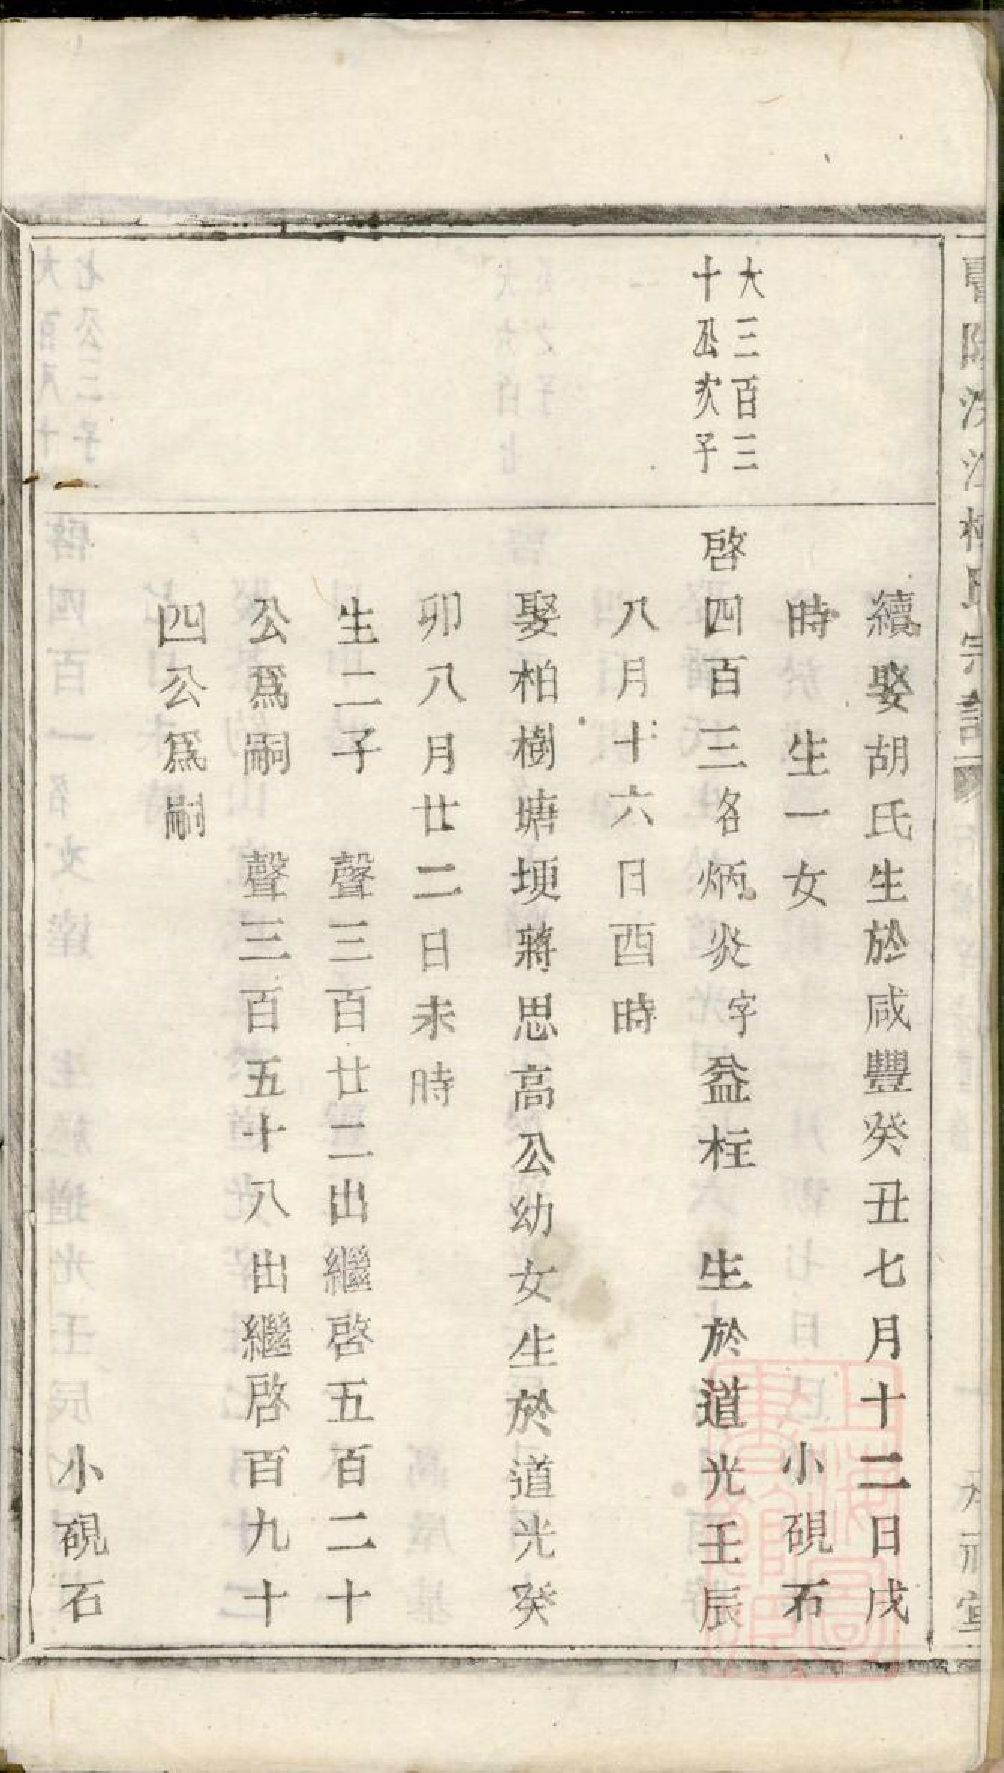 續娶胡氏生於咸豐癸丑七月十二日戌
時生一女 小硯石
大三百三
十公次子
啓四百三名炳炎字益柱 生於道光壬辰
八月十六日酉時
娶柏樹塘埂蔣思高公幼女生於道光癸
卯八月廿二日未時
生二子 聲三百廿二出繼啓五百二十
公爲嗣 聲三百五十八出繼啓百九十
四公爲嗣
小硯石